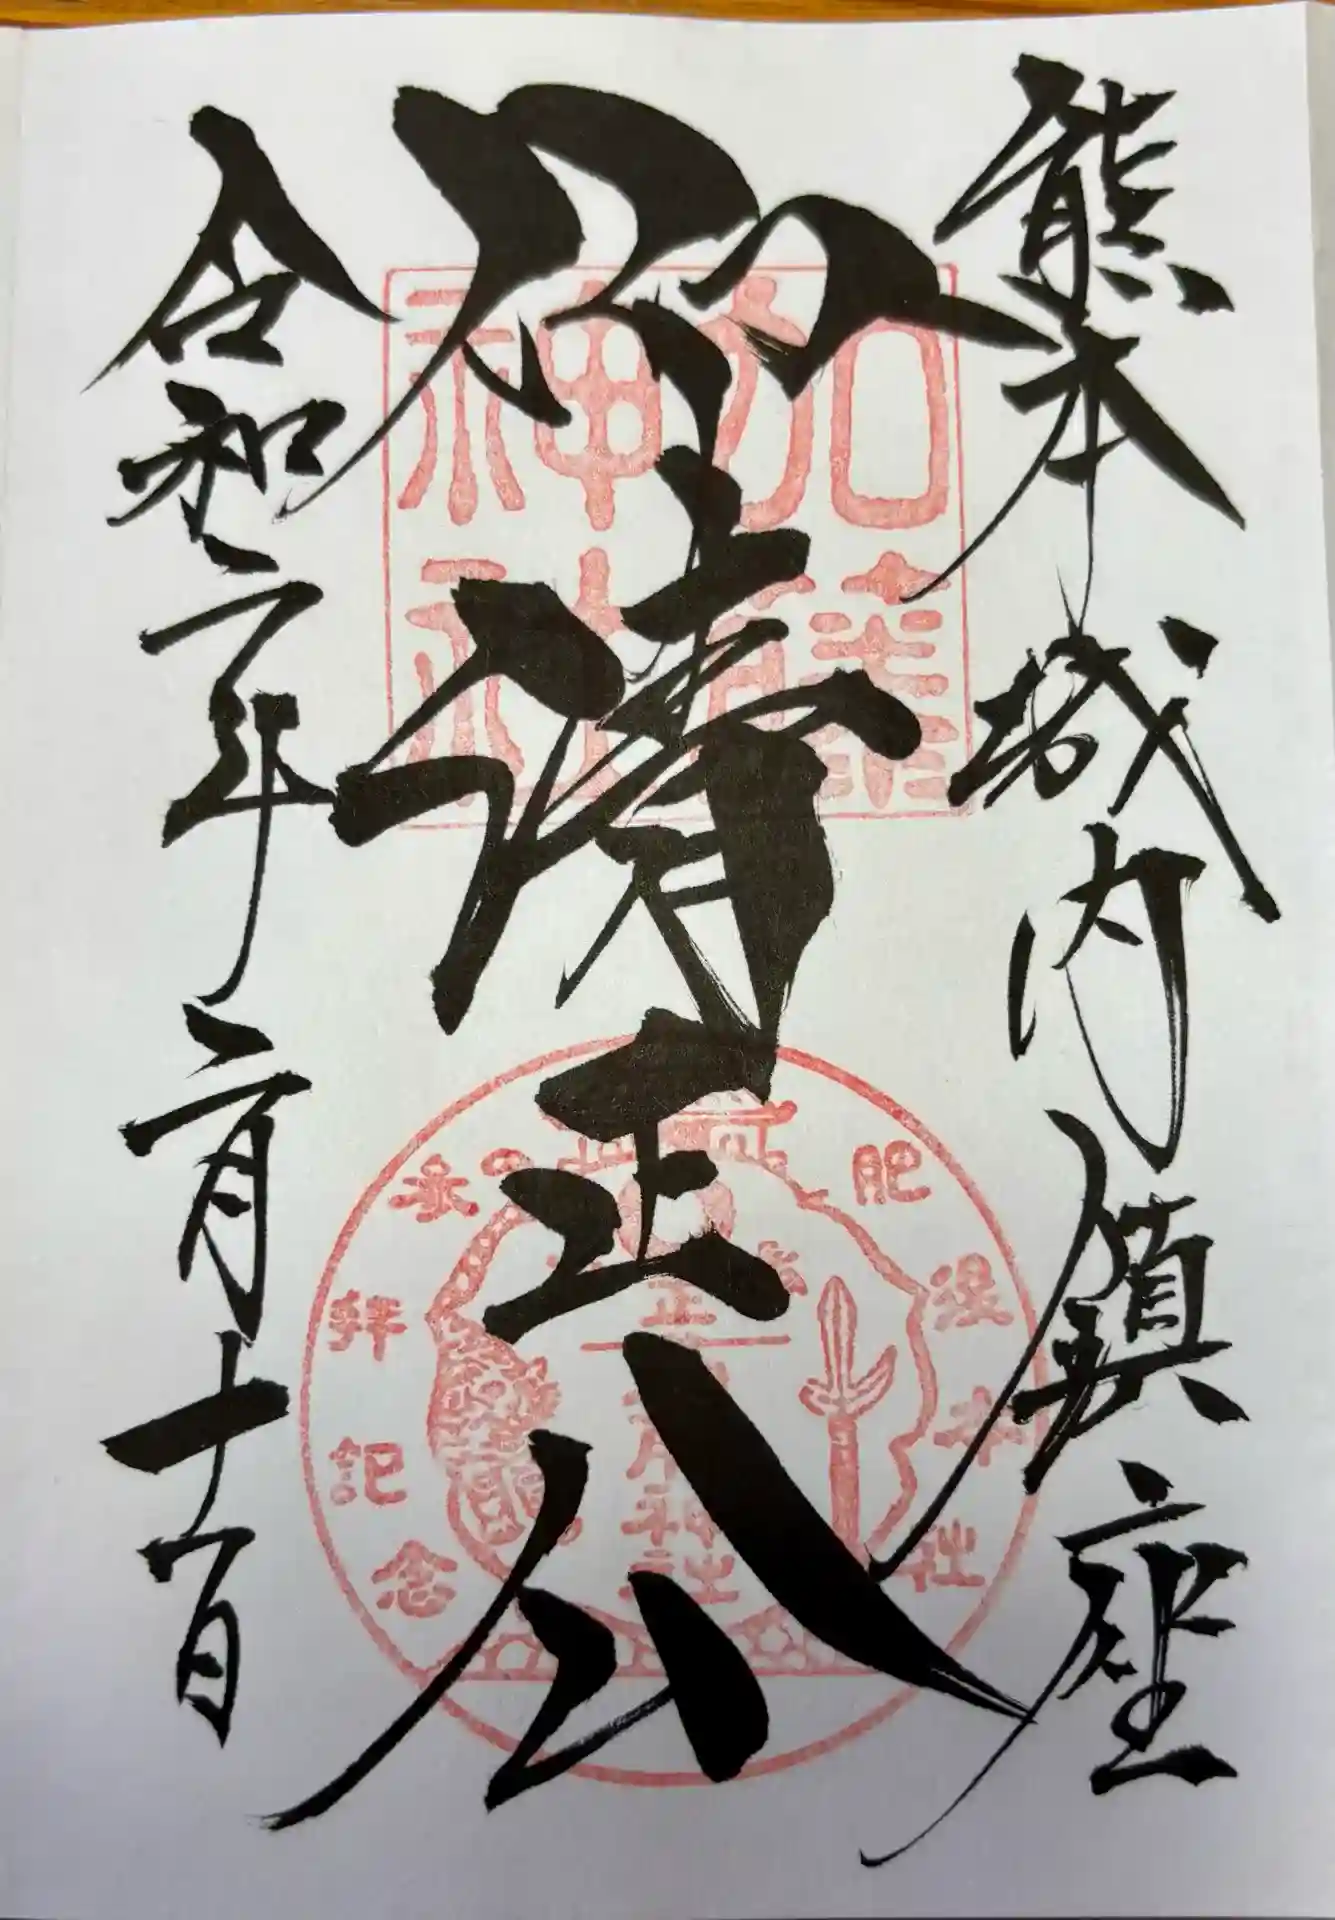 熊本城内鎮座
仰清正公
令和二年二月十一日
加藤
神社
肥後本社
参拝記念